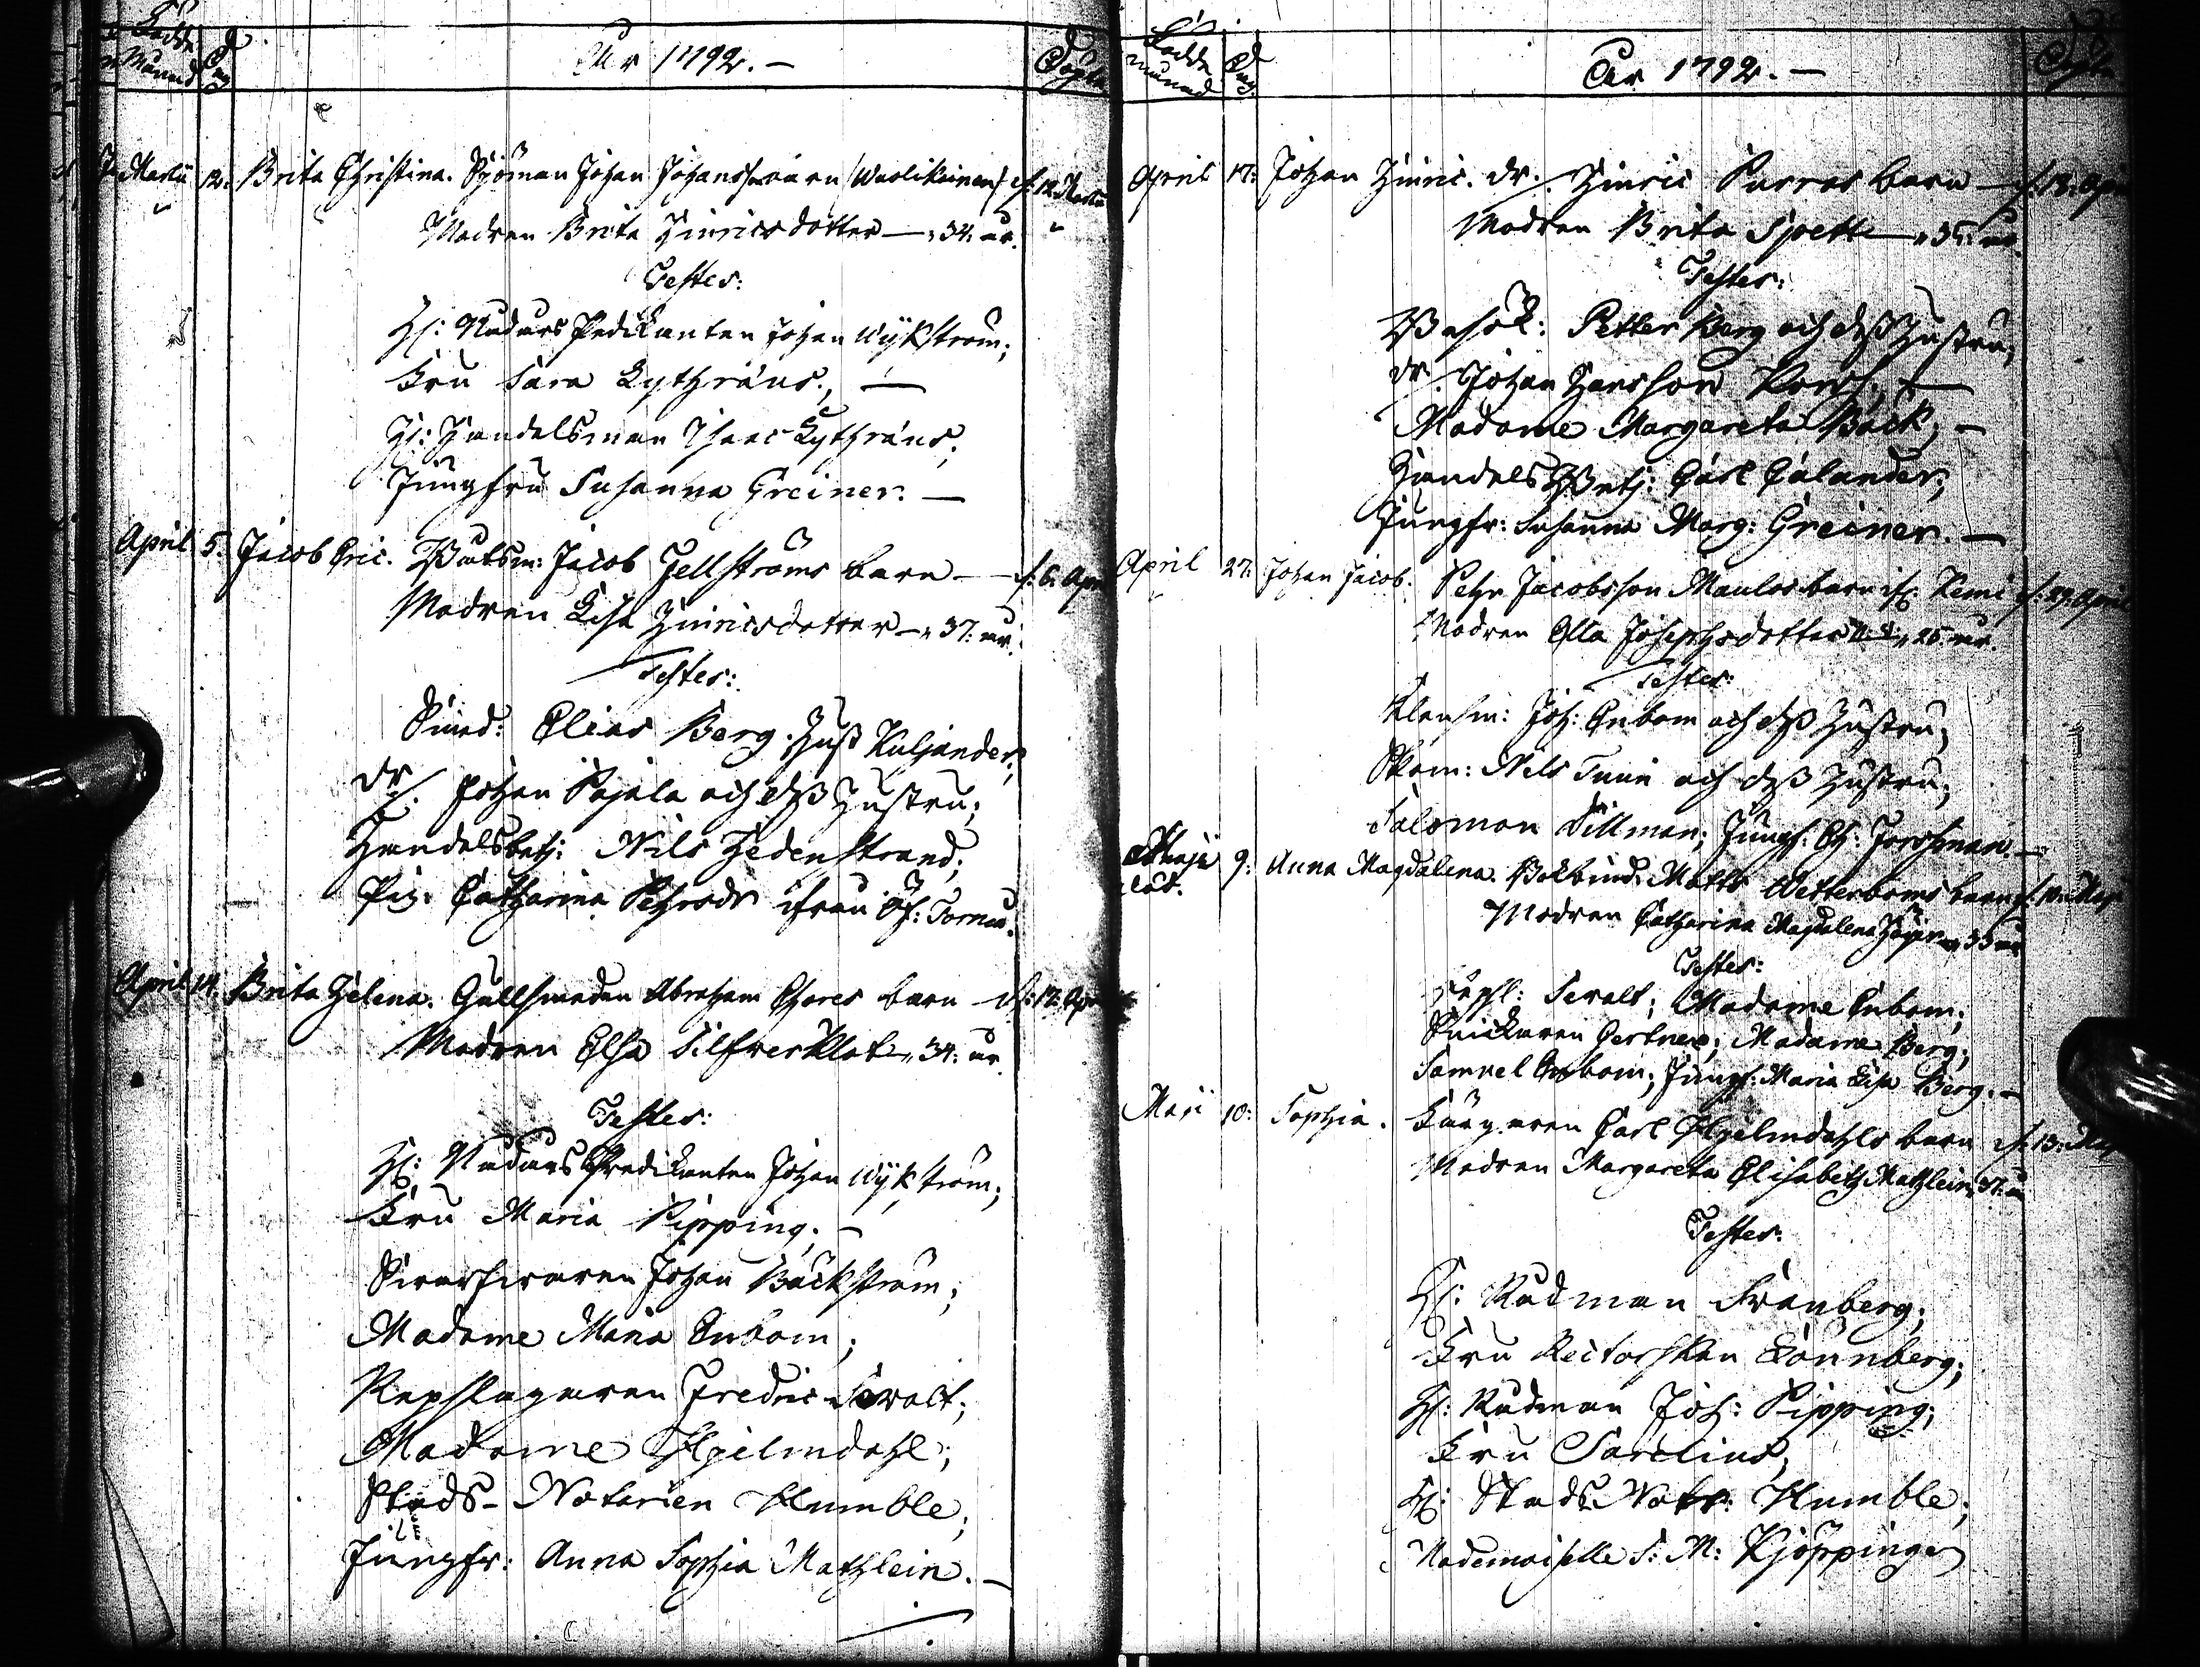 Födde
Månad Dag
Åhr 1792. —
Döpte
Martii 12. Brita Christina. Sjöman Johan Johanssons barn /Wuolikainen/ d: 12. Martii
Modren Brita Hinricsdotter — 34. år.
Testes:
H: Nådårs Predikanten Johan Wijkström;
Fru Sara Lythræus; —
H: Handelsman Isaac Lythræus;
Jungfru Susanna Greiner. —
April 5. Jacob Eric. Båtsm: Jacob Hellströms barn — d: 6. Apr
Modren Lisa Hinricsdotter — 37. år.
Testes:
Elias Berg. Hust Kuljander;
Dr. Johan Pajala och dess Hustru;
Handelsbetj: Nils Hedenstrand;
Pig. Catharina Pehrsdr ifrån Öf: Torneå.
April 14. Brita Helena. Gullsmeden Abraham Chores barn — d: 17. Apr
Modren Elsa Silfverklot — 34. år.
Testes:
H: Nådårs Predikanten Johan Wijkström;
Fru Maria Pipping; —
Svarfvaren Johan Bäckström;
Madame Maria Enbom;
Repslagaren Fredric Sevalt;
Madame Hjelmdahl;
Stads-Notarien Humble;
Jungfr: Anna Sophia Mathlein. —
Födde
Månad Dag.
Åhr 1792. —
Döpte
April 17: Johan Hinric. dr. Hinric Purras barn — d. 18. Apr
Modren Brita Spett — 35. år
Testes:
Besök: Petter Berg och dess Hustru;
dr. Johan Hansson —
Madame Margareta Bäck; —
Handels Betj: Carl Calander;
Jungfr: Susanna Marg: Greiner. —
April 27: Johan Jacob. Pehr Jacobsson Maulos barn if: Kemi d. 29. April
Modren Ella Josephsdotter 25. år.
Testes:
Klensm: Joh: Enbom och dess Hustru;
Skom: Nils Tuin och dess Hustru;
Salomon Tillman; Jungf: Forssman. —
Maji 9: Anna Magdalena. Bokbind: Matts Wetterboms barn d. 10. Maj
Modren Catharina Magdalena 33 år
Testes:
Repsl: Sevalt; Madame Enbom;
Snickaren Gertner; Madame Berg;
Samuel Enbom; Jungf: Maria Lisa Berg. —
Maji 10: Sophia. Färgaren Carl Hjelmdahls barn d. 13: Maj
Modren Margareta Elisabeth Mathlein, 37. år
Testes:
H: Rådman Franberg;
Fru Rectorskan Lönnberg;
H: Rådman Joh: Pipping;
Fru Sarelius;
H: Stads Notr: Humble;
Mademoiselle S: M: Kjöpping